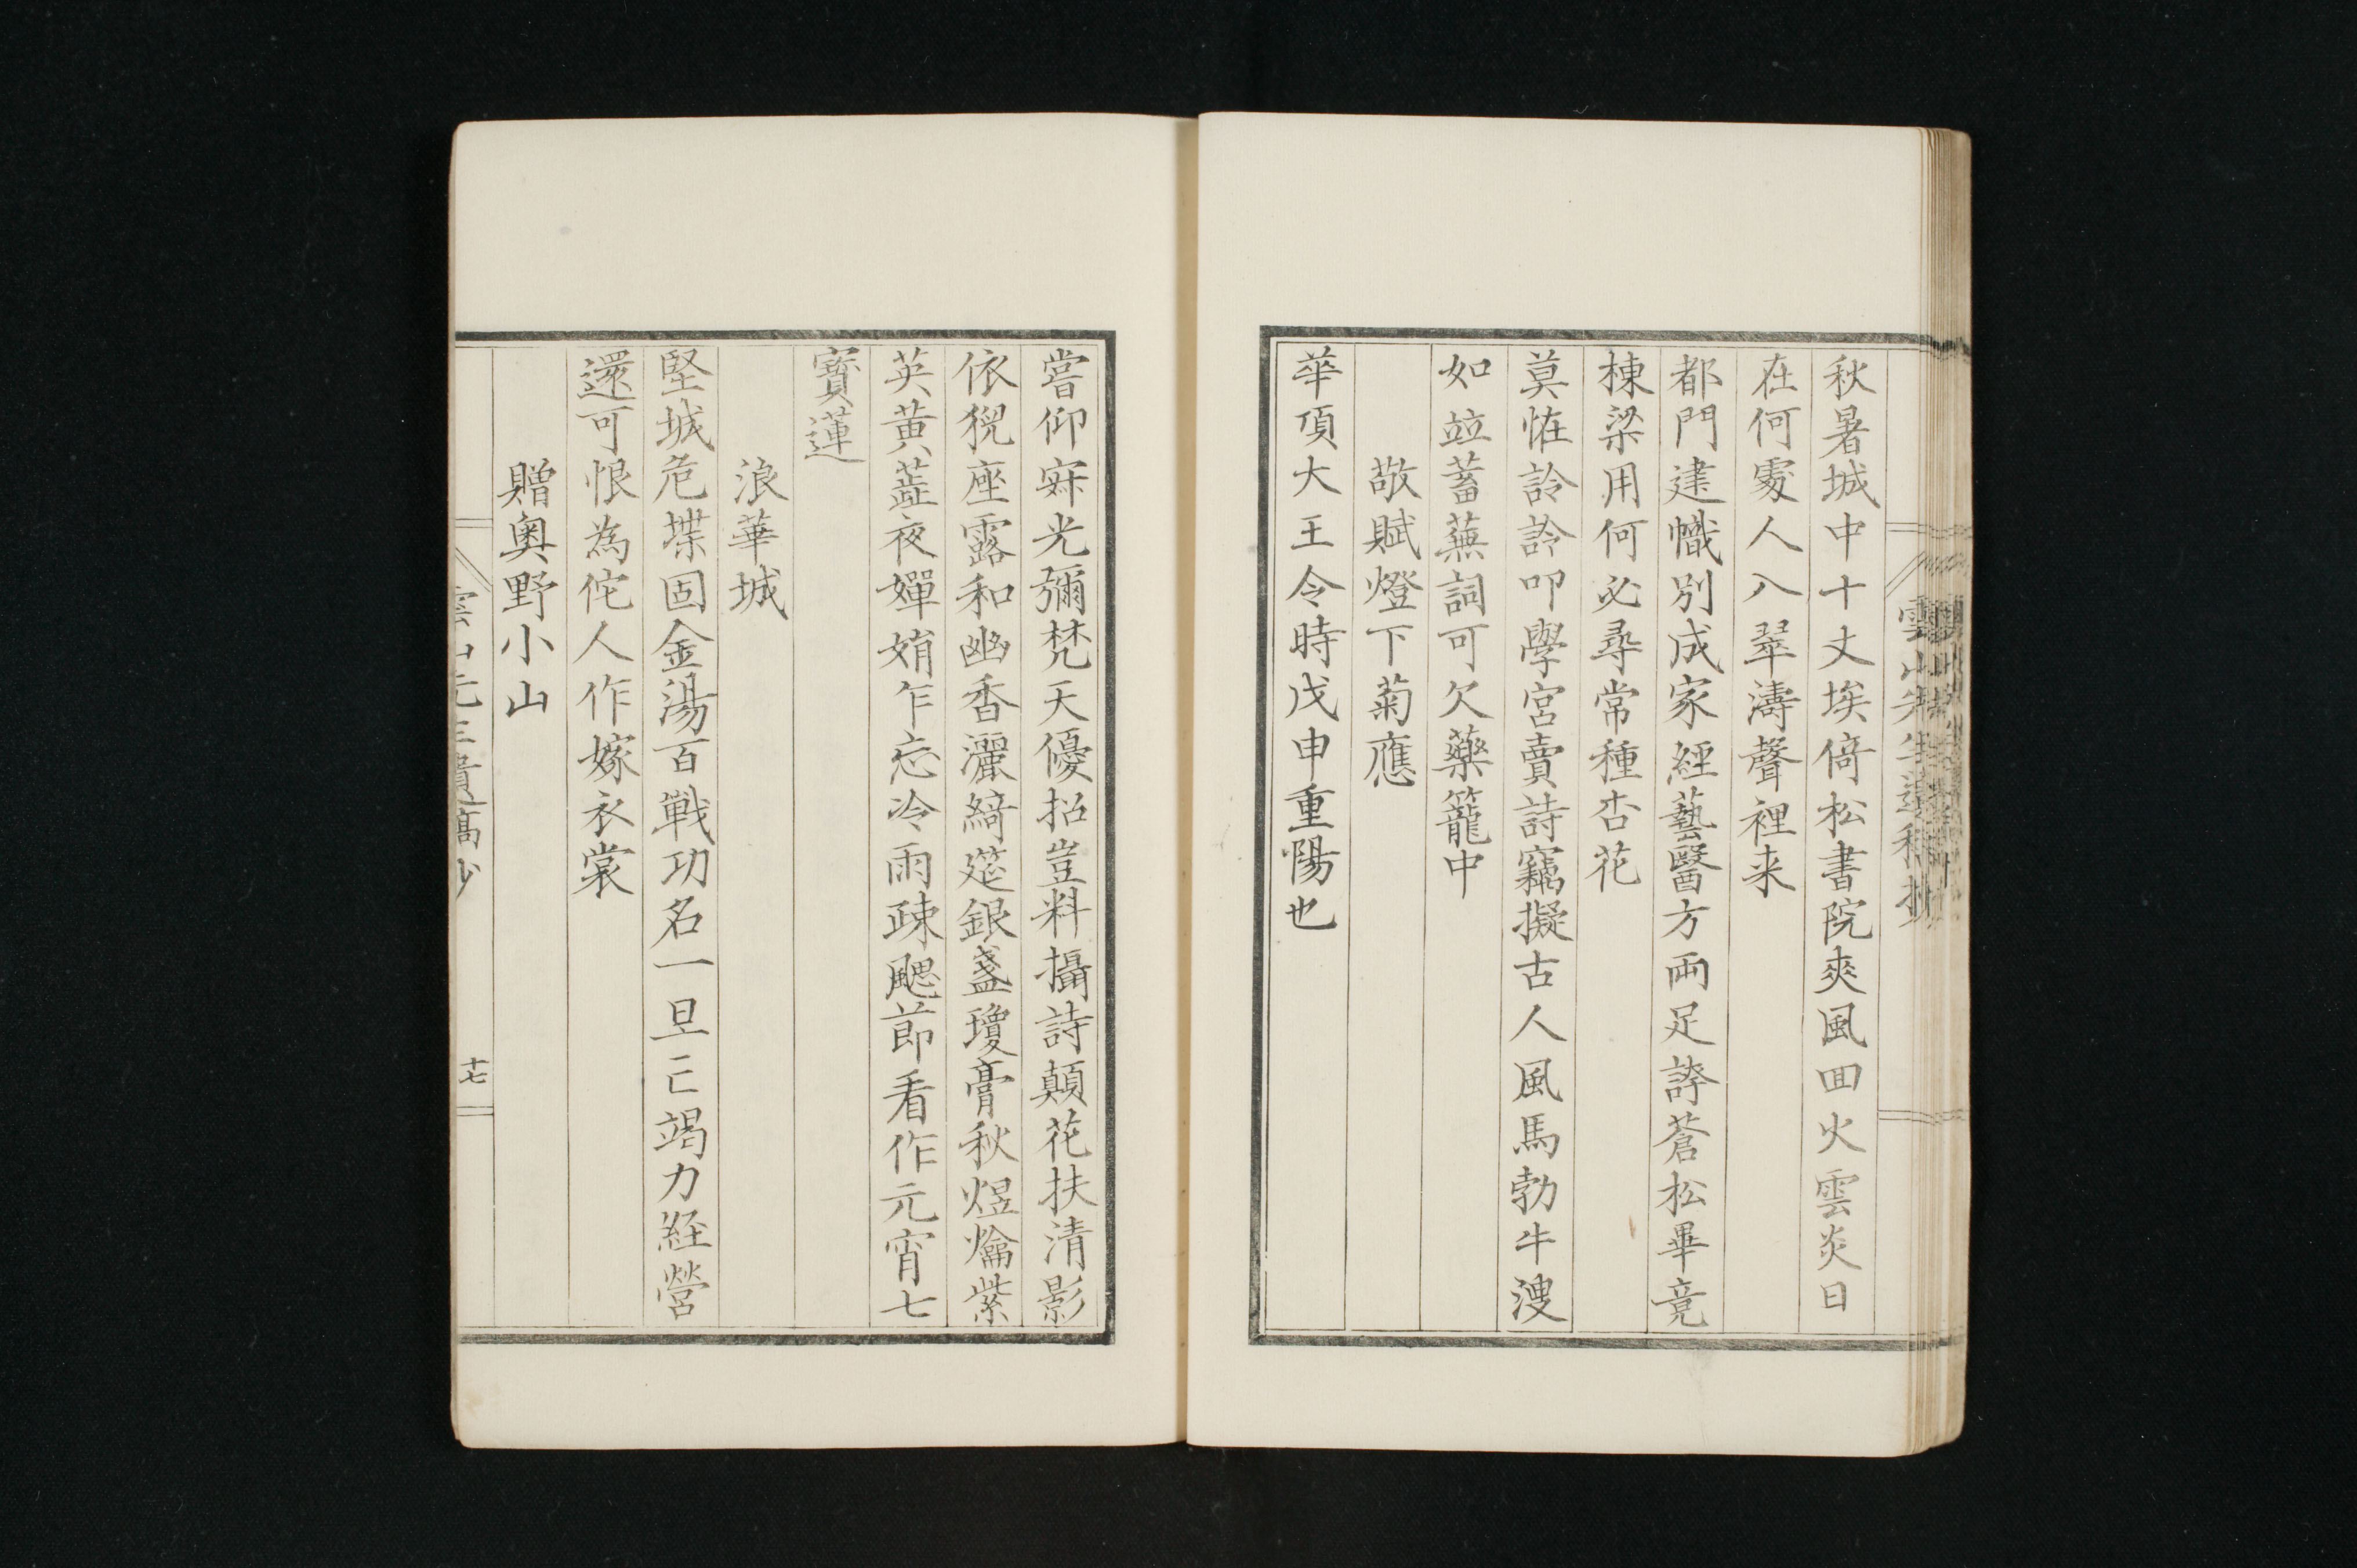 秋暑城中十丈埃倚松書院爽風回火雲炎日
在何處人入翠濤聲裡来
都門建幟別成家經藝醫方両足誇蒼松畢竟
棟梁用何必尋常種杏花
莫恠詅詅叩學宮賣詩竊擬古人風馬勃牛溲
如竝蓄蕪詞可欠藥籠中
敬賦燈下菊應
華頂大王令時戊申重陽也
嘗仰寂光彌梵天優招豈料攝詩顛花扶清影
依猊座露和幽香灑綺筵銀盞瓊膏秋煜爚紫
英黄蘂夜嬋娟乍忘冷雨疎颸莭看作元宵七
寶蓮
浪華城
堅城危堞固金湯百戦功名一旦亡竭力経營
還可恨為佗人作嫁衣裳
贈奥野小山
十七